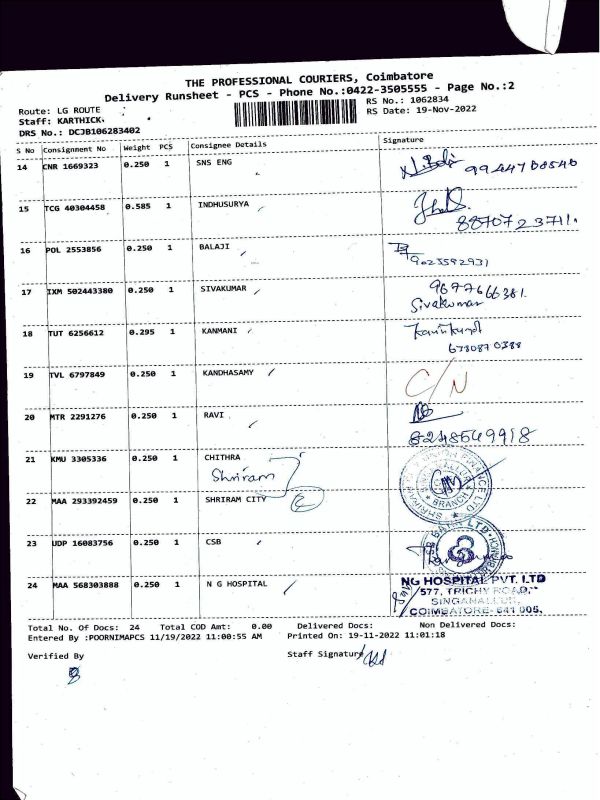 THE PROFESSIONAL COURIERS, Coimbatore
Delivery Runsheet - PCS - Phone No.:0422-3505555 - Page No.:2
Route: LG ROUTE
RS No.: 1062834
Staff: KARTHICK.
RS Date: 19-Nov-2022
DRS No.: DCJB106283402
S No Consignment No Weight PCS Consignee Details Signature
14 CNR 1669323 0.250 1 SNS ENG
15 TCG 40304458 0.585 1 INDHUSURYA
8870723711.
16 POL 2553856 0.250 1 BALAJI
9025592931
17 IXM 502443380 0.250 1 SIVAKUMAR 9677666381.
Sivakumar
18 TUT 6256612 0.295 1 KANMANI
19 TVL 6797849 0.250 1 KANDHASAMY C/N
20 MTR 2291276 0.250 1 RAVI
8248549918
21 KMU 3305336 0.250 1 CHITHRA
Shriram
22 MAA 293392459 0.250 1 SHRIRAM CITY
BRANCH
23 UDP 16083756 0.250 1 CSB
24 MAA 568303888 0.250 1 N G HOSPITAL
NG HOSPITAL PVT. LTD
577, TRICHY ROAD,
SINGANALLUR,
COIMBATORE- 641 005.
Total No. Of Docs: 24 Total COD Amt: 0.00 Delivered Docs: Non Delivered Docs:
Entered By :POORNIMAPCS 11/19/2022 11:00:55 AM Printed On: 19-11-2022 11:01:18
Verified By Staff Signature